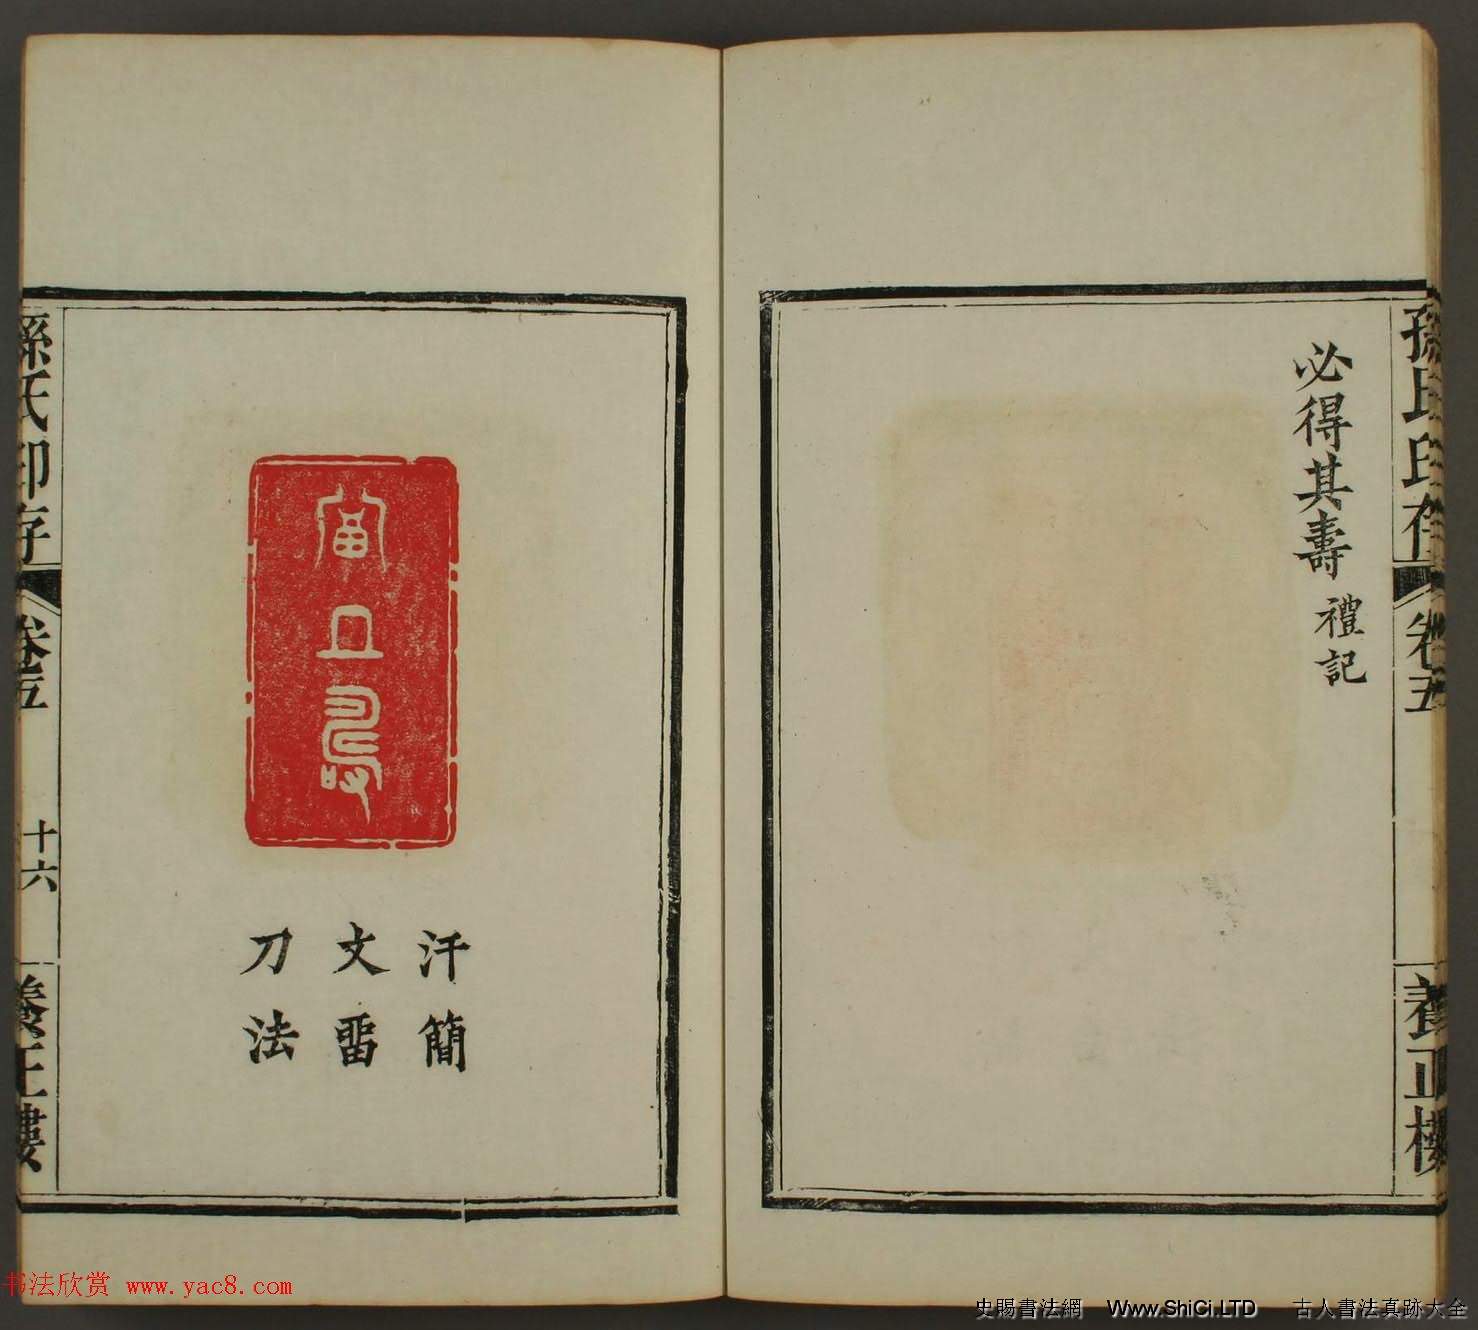 孫氏印存 卷五 養正樓
必得其壽 禮記
富且壽
汗簡
文畱
刀法
孫氏印存 卷五 十六 養正樓
书法欣赏 www.yac8.com
史賜書法網 Www.ShiCi.LTD 古人書法真跡大全